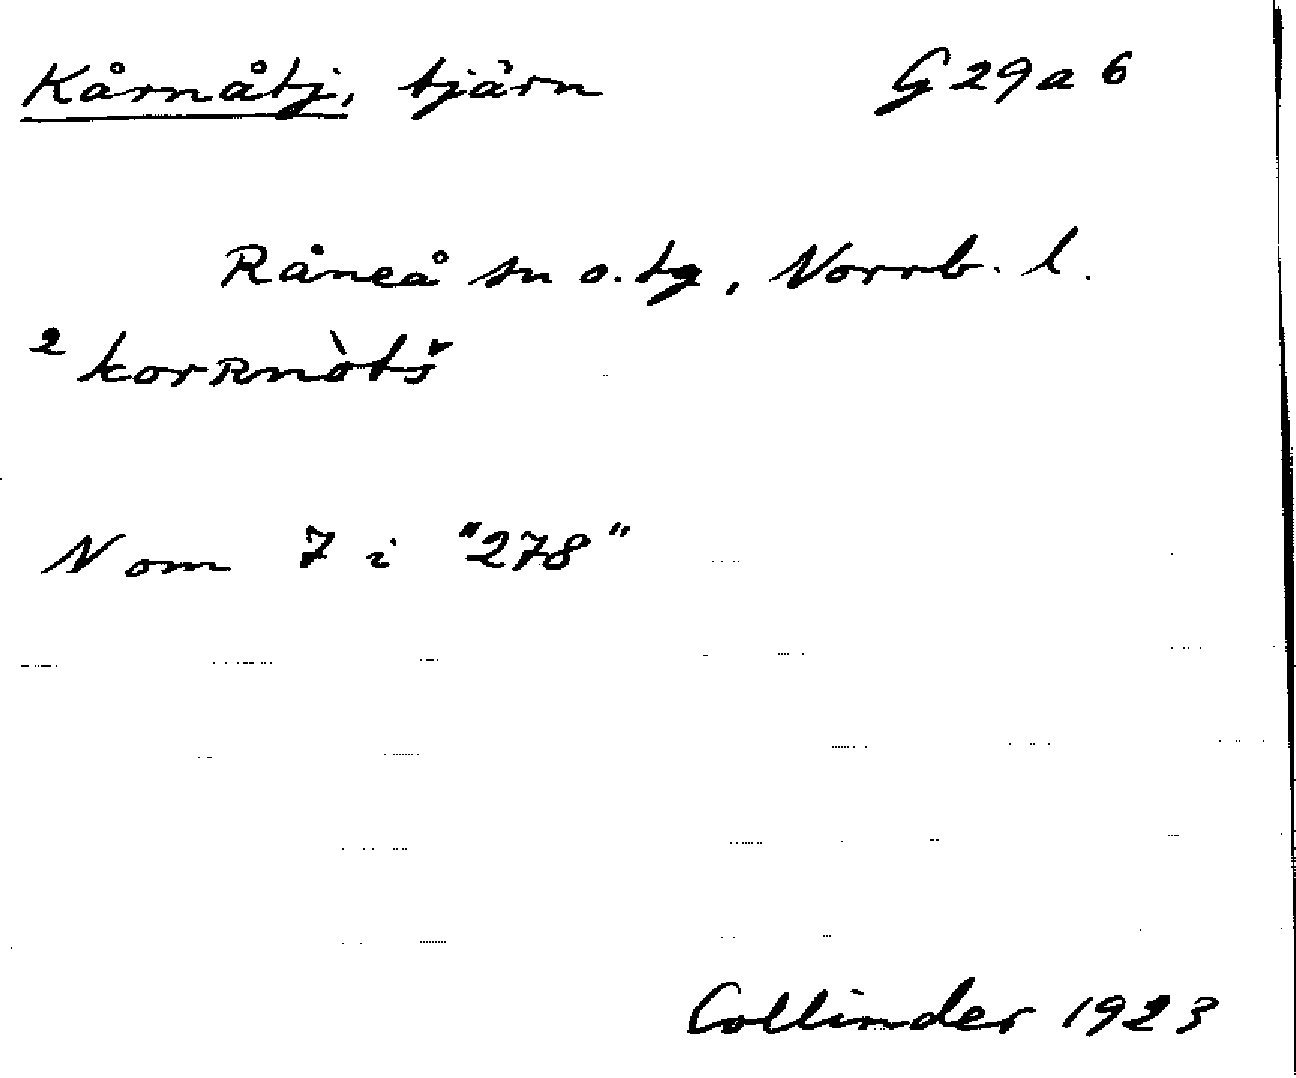 Kårnåtj, tjärn G 29 a 6
Råneå sn o. tg, Norrb. l.
² korʀnòtš
N om 7 i "278"
Collinder 1923